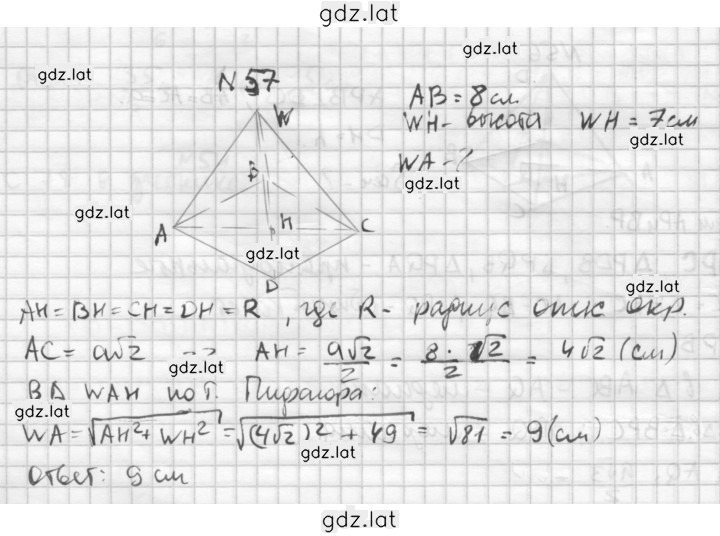 gdz.lat
gdz.lat
gdz.lat
N 57
AB = 8 см
WH - высота WH = 7 см
gdz.lat
WA - ?
gdz.lat
W
B
gdz.lat
A
H
C
gdz.lat
D
gdz.lat
AH = BH = CH = DH = R , где R - радиус опис окр.
AC = a√2 -> AH = a√2/2 = 8·√2/2 = 4√2 (см)
gdz.lat
В Δ WAH по т. Пифагора:
gdz.lat
WA = √AH² + WH² = √(4√2)² + 49 = √81 = 9 (см)
gdz.lat
Ответ: 9 см
gdz.lat